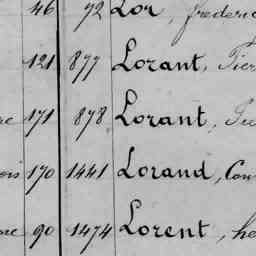 46 92 Lor, frederic
121 877 Lorant, Pier
171 878 Lorant,
170 1441 Lorand, Con
90 1474 Lorent, he